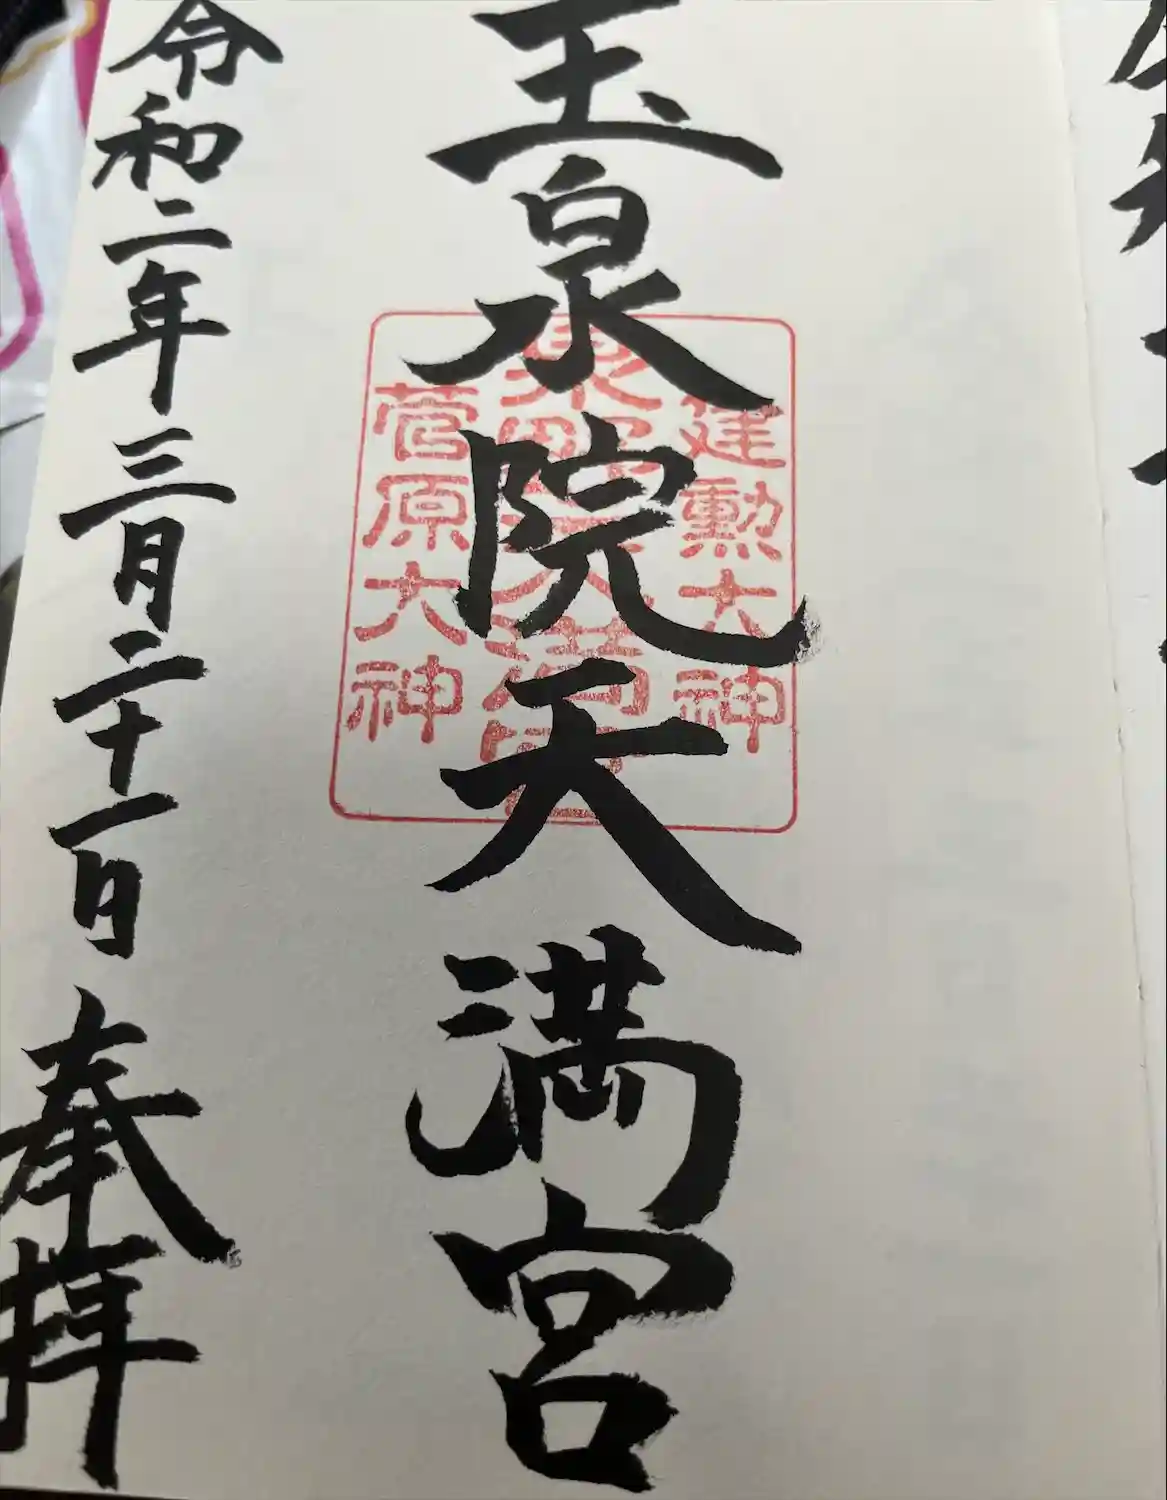 玉泉院天満宮
建勲大神
菅原大神
令和二年 三月二十一日 奉拝